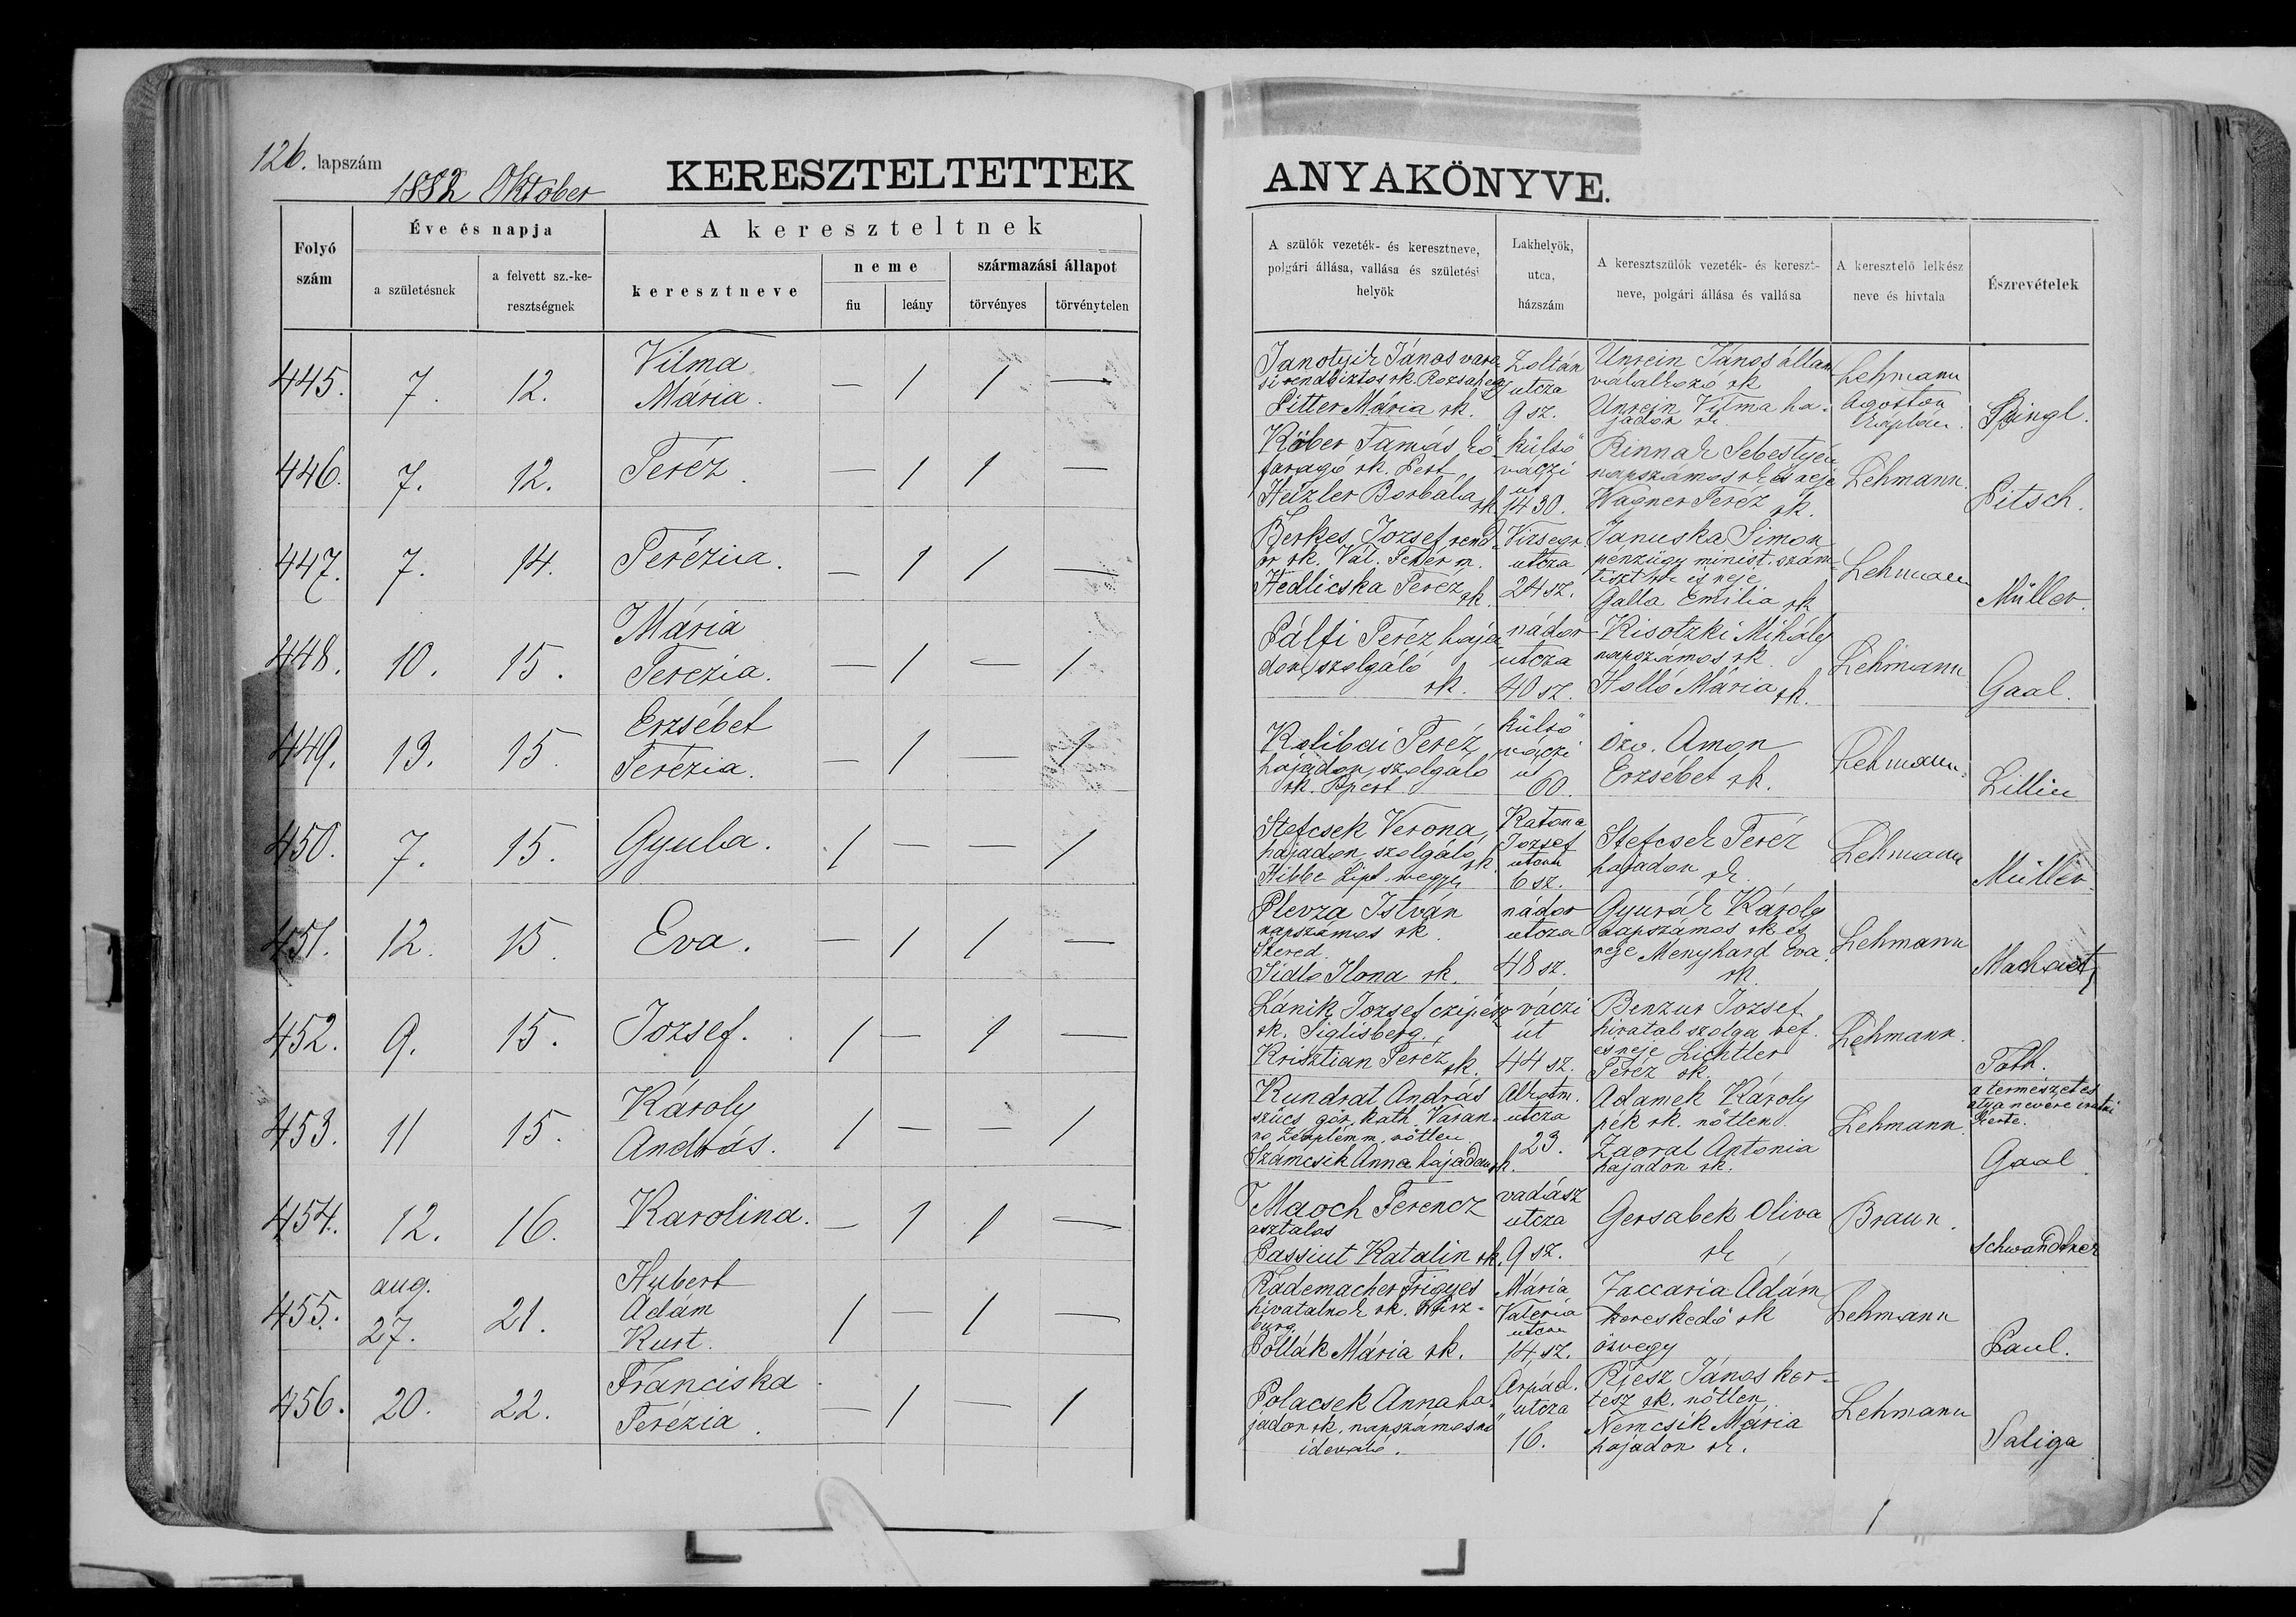 126. lapszám
1882 Oktober
KERESZTELTETTEK
ANYAKÖNYVE.
Folyó szám
Éve és napja
a születésnek
a felvett sz.-ke-
resztségnek
A kereszteltnek
keresztneve
neme
fiu
leány
származási állapot
törvényes
törvénytelen
A szülők vezeték- és keresztneve,
polgári állása, vallása és születési
helyök
Lakhelyök,
utca,
házszám
A keresztszülők vezeték- és kereszt-
neve, polgári állása és vallása
A keresztelő lelkész
neve és hivtala
Észrevételek
445. 7. 12.
Vilma
Mária.
— 1 1 —
Janotyik János vara
si rendbiztos rk. Rozsahegy
Pitter Mária rk.
Zoltán
utcza
9 sz.
Unrein János állam
vállalkozó rk
Unrein Vilma ha-
jadon rk
Lehmann
Agoston
káplán.
Spingl.
446. 7. 12.
Teréz.
— 1 1 —
Köber Tamás kő-
faragó rk. Pest
Heizler Borbála rk.
külső
váczi
ut
1430.
Rinnak Sebestyén
napszámos rk és neje
Wagner Teréz rk.
Lehmann.
Pitsch.
447. 7. 14.
Terézia.
— 1 1 —
Berkes Jozsef rend-
őr rk. Vál. Fehér m.
Hedlicska Teréz rk.
Vizsegr.
utcza
24 sz.
Januska Simon
pénzügy minist. szám-
tiszt rk és neje
Galla Emilia rk
Lehmann
Müller.
448. 10. 15.
Mária
Terezia.
— 1 — 1
Pálfi Teréz haja
don, szolgáló
rk.
nádor
utcza
40 sz.
Kisotzki Mihály
napszámos rk
Holló Mária rk.
Lehmann
Gaal.
449. 13. 15.
Erzsébet
Terézia.
— 1 — 1
Kalibai Teréz
hajadon, szolgáló
rk. Bpest
külső
váczi
ut
60.
özv. Amon
Erzsébet rk.
Lehmann.
Lillin
450. 7. 15.
Gyula.
1 — — 1
Stefcsek Verona,
hajadon, szolgáló rk
Hibbe Lipt. megye
Katona
Jozsef
utcza
6 sz.
Stefcsek Teréz
hajadon rk.
Lehmann
Müller.
451. 12. 15.
Eva.
— 1 1 —
Plevza István
napszámos rk
Szered.
Sidlo Ilona rk.
nádor
utcza
48 sz.
Gyurák Károly
napszámos rk és
neje Menyhard Eva.
rk.
Lehmann
452. 9. 15.
Jozsef.
1 — 1 —
Lánik Jozsef czipész
rk. Siglisberg.
Krisztian Teréz rk.
váczi
út
44 sz.
Benzur Jozsef
hivatal szolga ref.
és neje Lichtler
Teréz rk.
Lehmann.
Toth.
453. 11 15.
Károly
András.
1 — — 1
Kundrat András
szűcs gör. kath. Varan-
no Zemplém m. nőtlen
Számcsik Anna hajadon rk.
Alkotm.
utcza
23.
Adamek Károly
pék rk. nőtlen
Zaoral Antonia
hajadon rk.
Lehmann.
a természetes
atya nevére iratni
kérte.
Gaal
454. 12. 16.
Karolina.
— 1 1 —
Maoch Ferencz
asztalos
Passiut Katalin rk.
vadász
utcza
9 sz.
Gersabek Oliva
rk
Braun.
Schwandtner
455. aug. 27. 21.
Hubert
Adám
Kurt.
1 — 1 —
Rademacher Frigyes
hivatalnok rk. Würz-
burg.
Pollák Mária rk.
Mária
Valéria
utcza
14 sz.
Zaccaria Adám
kereskedő rk
özvegy
Lehmann
Paul.
456. 20. 22.
Franciska
Terézia.
— 1 — 1
Polacsek Anna ha-
jadon rk. napszámosnő
idevaló.
Arpád.
utcza
16.
Riesz János ker-
tész rk. nőtlen
Nemcsik Mária
hajadon rk.
Lehmann
Saliga